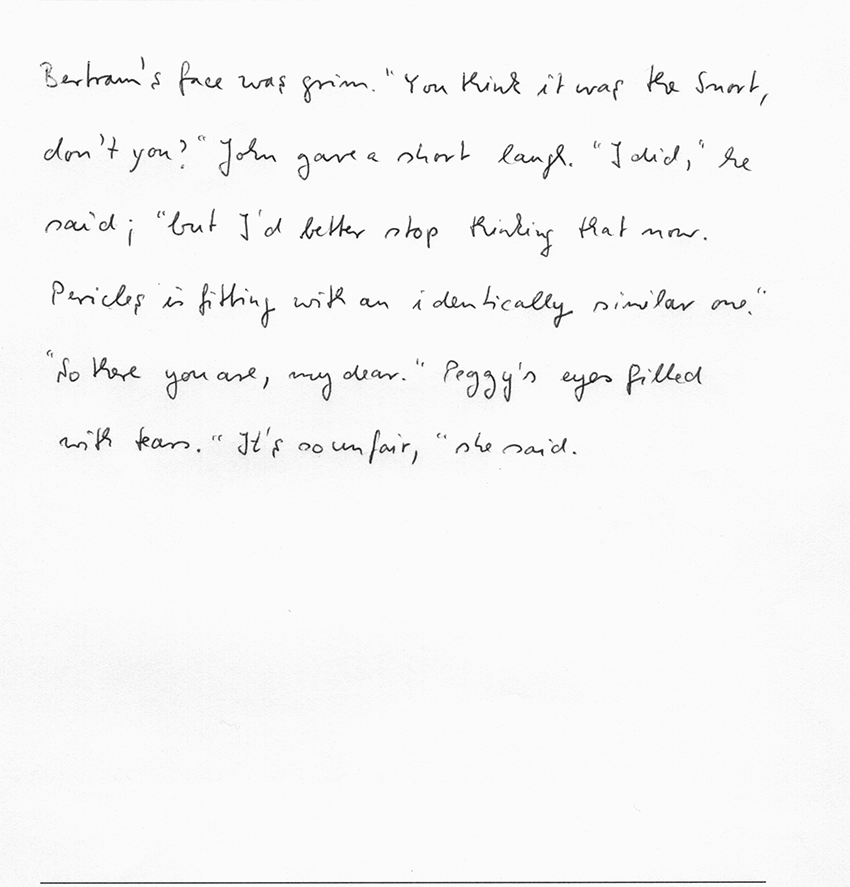 Bertram's face was grim. "You think it was the Snort,
don't you?" John gave a short laugh. "I did," he
said; "but I'd better stop thinking that now.
Pericles is fitting with an identically similar one."
"So there you are, my dear." Peggy's eyes filled
with tears. "It's so unfair, "she said.